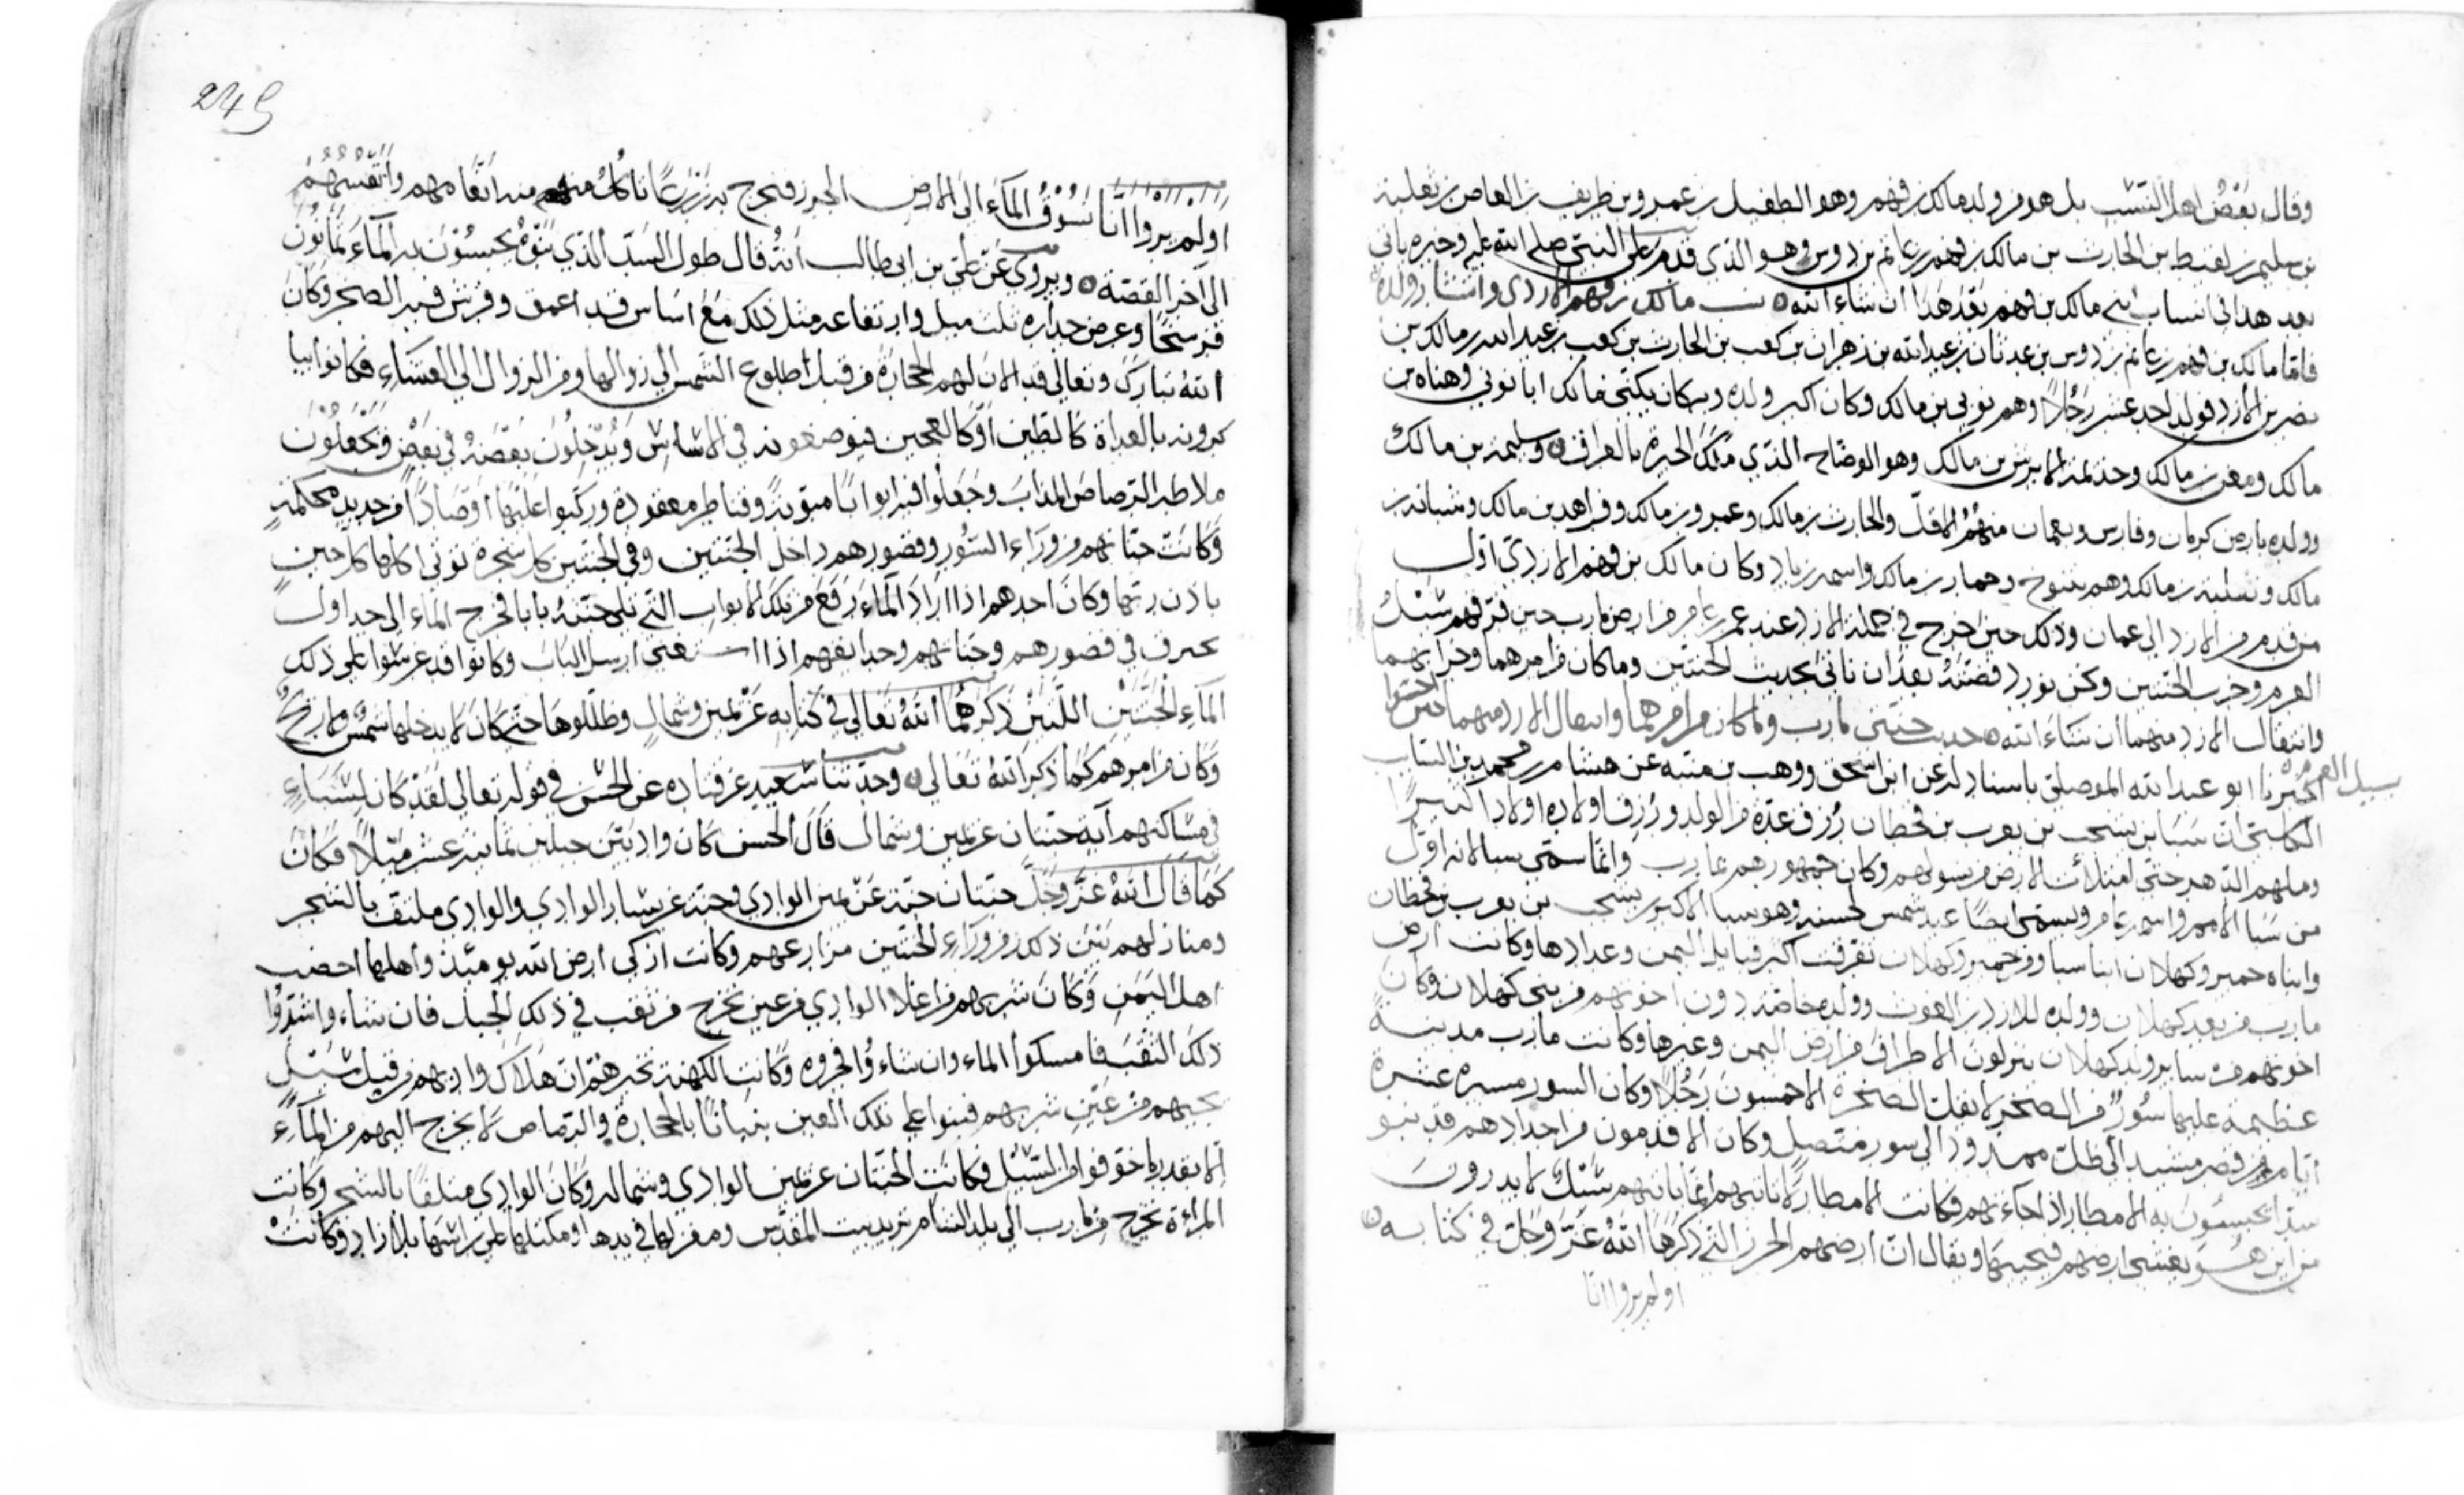 وقال بعض اهل النسب بل هو من ولد مالك بن فهم وهو الطفيل بن عمرو بن طريف بن العاص بن ثعلبة
بن سليم بن لقيط بن الحارث بن مالك بن فهم بن غانم بن دوس وهو الذي قدم على النبي صلى الله عليه وخبره ياتي
بعد هذا في انساب بني مالك بن فهم بعد هذا ان شاء الله نسب مالك بن فهم الازدي وانساب ولده
فاما مالك بن فهم بن غانم بن دوس بن عدثان بن عبد الله بن زهران بن كعب بن الحارث بن كعب بن عبد الله بن مالك بن
نصر بن الازد فولد احد عشر رجلا وهم نوي بن مالك وكان اكبر ولده وبه كان يكنى مالك ابا نوي وهناه بن
مالك ومعن بن مالك وجذيمة الابرش بن مالك وهو الوضاح الذي ملك الحيرة بالعراق وسليمة بن مالك
وولده بارض كرمان وفارس وبعمان منهم الاقل والحارث بن مالك وعمرو بن مالك وفراهيد بن مالك وشبابة بن
مالك وثعلبة بن مالك وهم بتنوخ وحمار بن مالك واسمه زياد وكان مالك بن فهم الازدي اول
من قدم من الازد الى عمان وذلك حين خرج في جملة الازد عند عمرو بن عامر من ارض مارب حين فرقهم سيل
العرم وخرب الجنتين ونحن نورد قصته بعد ان ناتي بحديث الجنتين وما كان من امرهما وخرابهما
وانتقال الازد منهما ان شاء الله حديث جنتي مارب وما كان من امرهما وانتقال الازد منهما حين اخربها
سيل العرم
اخبرنا ابو عبد الله الموصلي باسناد له عن ابن اسحق ووهب بن منبه عن هشام بن محمد بن السايب
الكلبي ان سبا بن يشجب بن يعرب بن قحطان رزق عدة من الولد ورزق اولاده اولادا كثيرا
وملهم الدهر حتى امتلات الارض من نسولهم وكان جمهورهم بمارب وانما سمي سبا لانه اول
من سبا الامم واسمه عامر ويسمى ايضا عبد شمس لحسنه وهو سبا الاكبر بن يشجب بن يعرب بن قحطان
وابناه حمير وكهلان ابنا سبا ومن حمير وكهلان تفرقت اكبر قبايل اليمن وعدادها وكانت ارض
مارب من بعد كهلان وولده للازد بن الغوث وولده خاصة دون اخوتهم من بني كهلان وكان
اخوتهم من ساير ولد كهلان ينزلون الاطراف من ارض اليمن وغيرها وكانت مارب مدينة
عظيمة عليها سور من الصخر لا يقل الصخرة الا خمسون رجلا وكان السور مسيرة عشرة
ايام من قصر مشيد الى ظل ممدود الى سور متصل وكان الاقدمون من اجدادهم قد بنوا
سدا يحبسون به الامطار اذا جاءتهم فكانت الامطار لا تاتيهم انما ياتيهم سيل لا يدرون
من اين هو يغشى ارضهم فيحييها ويقال ان ارضهم الجرز التي ذكرها الله عز وجل في كتابه
اولم يروا انا
249
اولم يروا انا نسوق الماء الى الارض الجرز فنخرج به زرعا تاكل منه انعامهم وانفسهم
الى آخر القصة ويروى عن علي بن ابي طالب انه قال طول السد الذي بنوه يحبسون به الماء ثمانون
فرسخا وعرض جداره ثلث ميل وارتفاعه مثل ذلك مع اساس قد اعمق وفرش فيه الصخر وكان
الله تبارك وتعالى قد الان لهم الحجارة من قبل طلوع الشمس الى زوالها ومن الزوال الى العشاء فكانوا
بالغداة كالطين او كالعجين فيوضعونه في الاساس ويدخلون بعضه في بعض ويجعلون
ملاطه الرصاص المذاب وجعلوا فيه ابوابا مبوبة وقناطر معقودة وركبوا عليها اوصادا من حديد محكمة
وكانت جناتهم من وراء السور وقصورهم داخل الجنتين وفي الجنتين كل شجرة توتي اكلها كل حين
باذن ربها وكان احدهم اذا اراد الماء رفع من تلك الابواب التي تلي جنته بابا فخرج الماء الى جداول
تخترق في قصورهم وجناتهم وحدايقهم اذا استغنى ارسل الباب وكانوا قد غرسوا على ذلك
الماء الجنتين اللتين ذكرهما الله تعالى في كتابه عن يمين وشمال وظللوها حتى كان لا يدخلها شمس ولا ريح
وكان من امرهم كما ذكر الله تعالى وحدثنا سعيد عن قتاده عن الحسن في قوله تعالى لقد كان لسباء
في مساكنهم آية جنتان عن يمين وشمال قال الحسن كان وادي بين جبلين ثمانية عشر ميلا فكان
كما قال الله عز وجل جنتان جنة عن يمين الوادي وجنة عن يسار الوادي والوادي ملتف بالشجر
ومنازلهم بين ذلك من وراء الجنتين مزارعهم وكانت ازكى ارض الله يومئذ واهلها اخصب
اهل اليمن وكان شربهم من اعلا الوادي من عين تخرج من نقب في ذلك الجبل فان شاءوا شدوا
ذلك النقب فامسكوا الماء وان شاءوا فجروه وكانت الكهنة تخبرهم ان هلاك واديهم من قبل سيل
يجيهم من عين شربهم فبنوا على تلك العين بنيانا بالحجارة والرصاص لا يخرج اليهم من الماء
الا بقدر ما خوفوا من السيل فكانت الجنتان عن يمين الوادي وشماله وكان الوادي ملتفا بالشجر وكانت
المراة تخرج من مارب الى بلد الشام تريد بيت المقدس ومغزلها في يدها ومكتلها على راسها بلا زاد وكانت